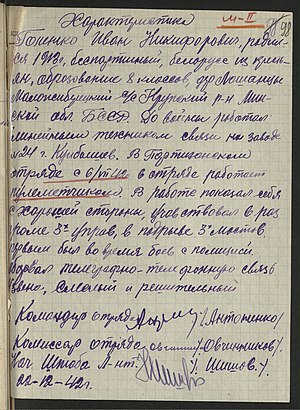 М-II
98
Характеристика
Иван Никифорович, родил-
ся 1919, беспартийный, белорус из кресть-
ян, образование 8 классов, д.
с/с Крупский р-н Мин-
ской обл БССР. До войны работал
линейным техником связи на заводе
№24 г. Куйбышев. В Партизанском
отряде с 6/VI 42 в отряде работает
пулеметчиком. В работе показал себя
с хорошей стороны, участвовал в раз
громе 3х управ, в подрыве 3х мостов
первым был во время боев с полицией.
телеграфно-телефонную связь
смелый и решительный
Командир отряда /Антоненко/
Комиссар отряда /Овчинников/
Нач. Штаба Л-нт. /Шишов./
12-42г.